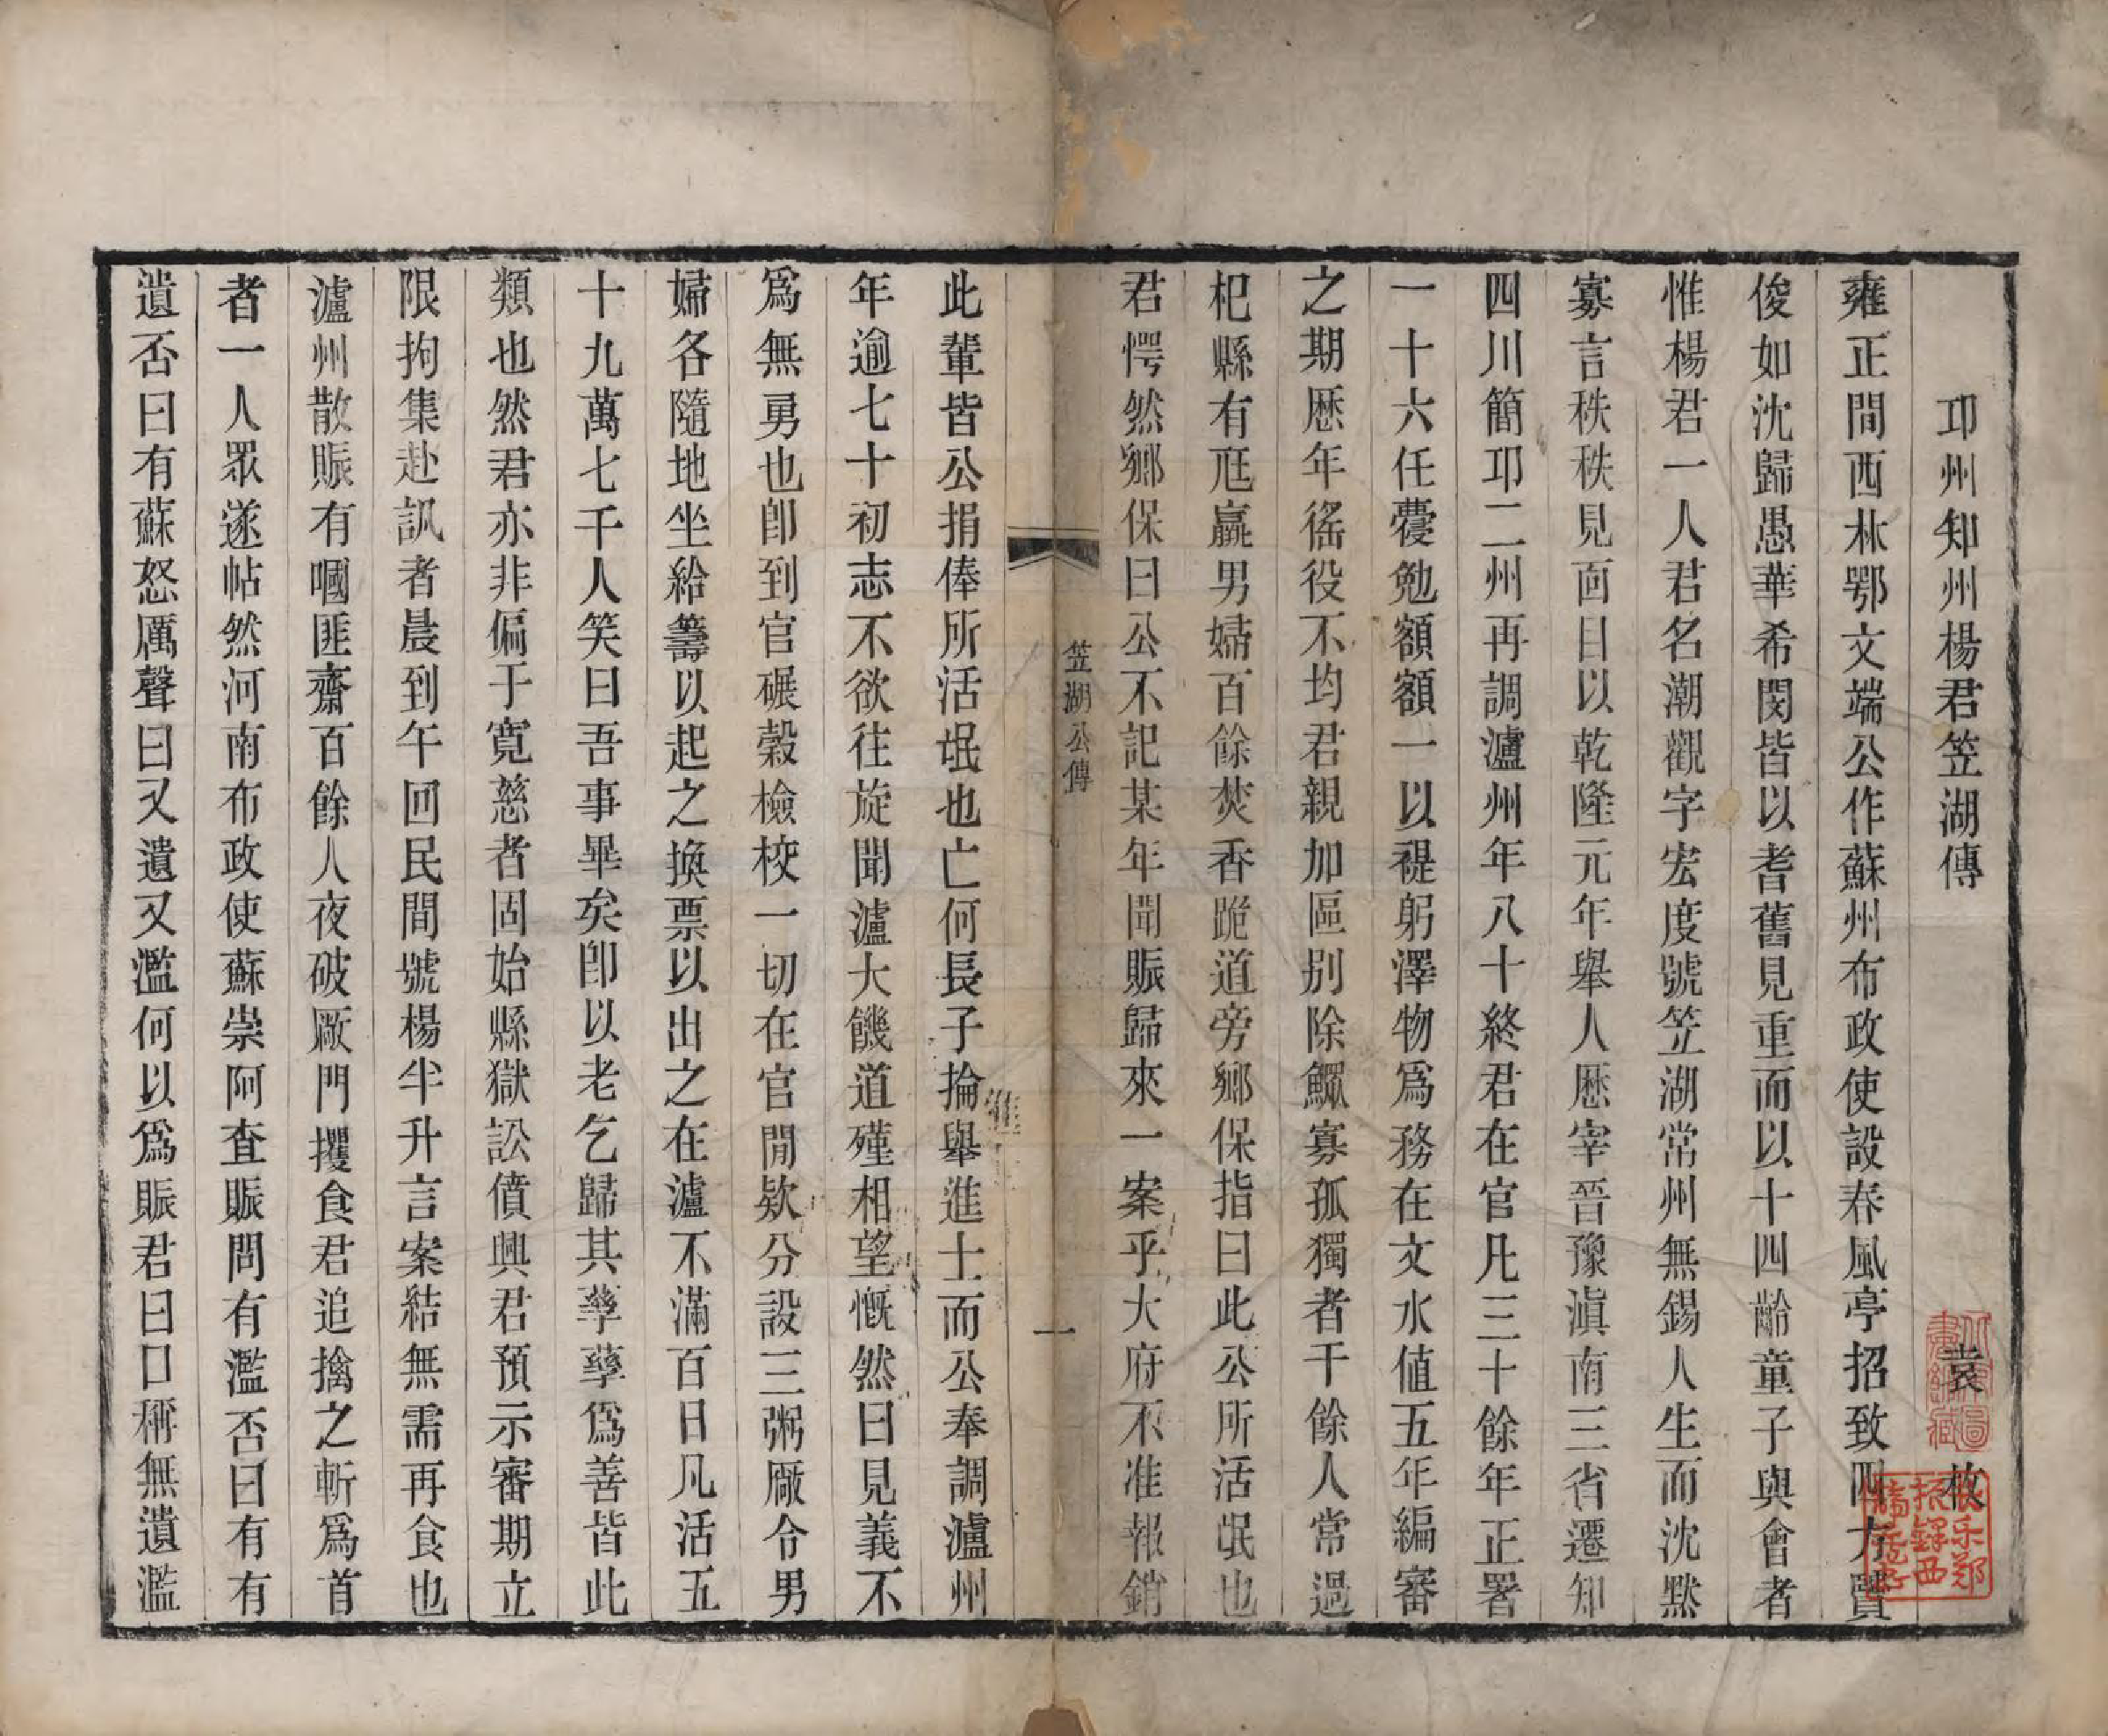 邛州知州楊君笠湖傳
袁枚
雍正間西林鄂文端公作蘇州布政使設春風亭招致四方賢
俊如沈歸愚華希閔皆以耆舊見重而以十四齡童子與會者
惟楊君一人君名潮觀字宏度號笠湖常州無錫人生而沈黙
寡言秩秩見面目以乾隆元年舉人歷宰晉豫滇南三省遷知
四川簡邛二州再調瀘州年八十終君在官凡三十餘年正署
一十六任虁勉額額一以禔躬澤物爲務在文水值五年編審
之期歷年徭役不均君親加區別除鰥寡孤獨者千餘人常過
杞縣有尫羸男婦百餘焚香跪道旁鄉保指曰此公所活氓也
君愕然鄉保曰公不記某年聞賑歸來一案乎大府不准報銷
笠湖公傳
一
此輩皆公捐俸所活氓也亡何長子掄舉進士而公奉調瀘州
年逾七十初志不欲往旋聞瀘大饑道殣相望慨然曰見義不
爲無勇也卽到官碾穀檢校一切在官閒欵分設三粥厰令男
婦各隨地坐給籌以起之換票以出之在瀘不滿百日凡活五
十九萬七千人笑曰吾事畢矣卽以老乞歸其孳孳爲善皆此
類也然君亦非偏于寬慈者固始縣獄訟僨興君預示審期立
限拘集赴訊者晨到午回民間號楊半升言案結無需再食也
瀘州散賑有嘓匪齋百餘人夜破厰門攫食君追擒之斬爲首
者一人眾遂帖然河南布政使蘇崇阿查賑問有濫否曰有有
遺否曰有蘇怒厲聲曰又遺又濫何以爲賑君曰口稱無遺濫